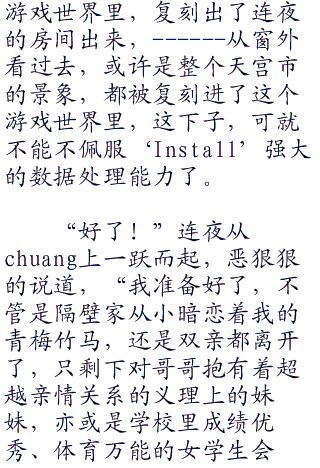 游戏世界里，复刻出了连夜
的房间出来，------从窗外
看过去，或许是整个天宫市
的景象，都被复刻进了这个
游戏世界里，这下子，可就
不能不佩服‘Install’强大
的数据处理能力了。
“好了！”连夜从
chuang上一跃而起，恶狠狠
的说道，“我准备好了，不
管是隔壁家从小暗恋着我的
青梅竹马，还是双亲都离开
了，只剩下对哥哥抱有着超
越亲情关系的义理上的妹
妹，亦或是学校里成绩优
秀、体育万能的女学生会